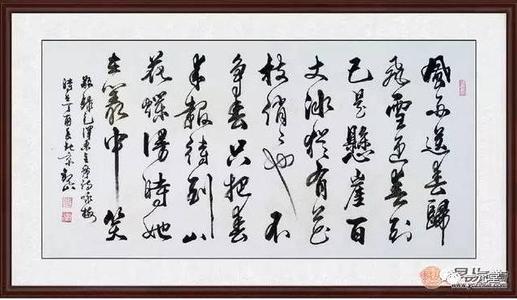 風雨送春歸
飛雪迎春到
已是懸崖百
丈冰猶有花
枝俏俏也不
争春只把春
来報待到山
花爛漫時她
在叢中笑
敬錄毛澤東主席詞咏梅